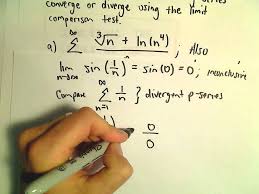 converge or diverge using the limit
comparison test
a) ∞ Σ ∛n + ln(n⁴) ; Also
lim n→∞ sin(1/n) = sin(0) = 0 ; inconclusive
Compare ∞ Σ n=1 1/n } divergent p-series
0/0